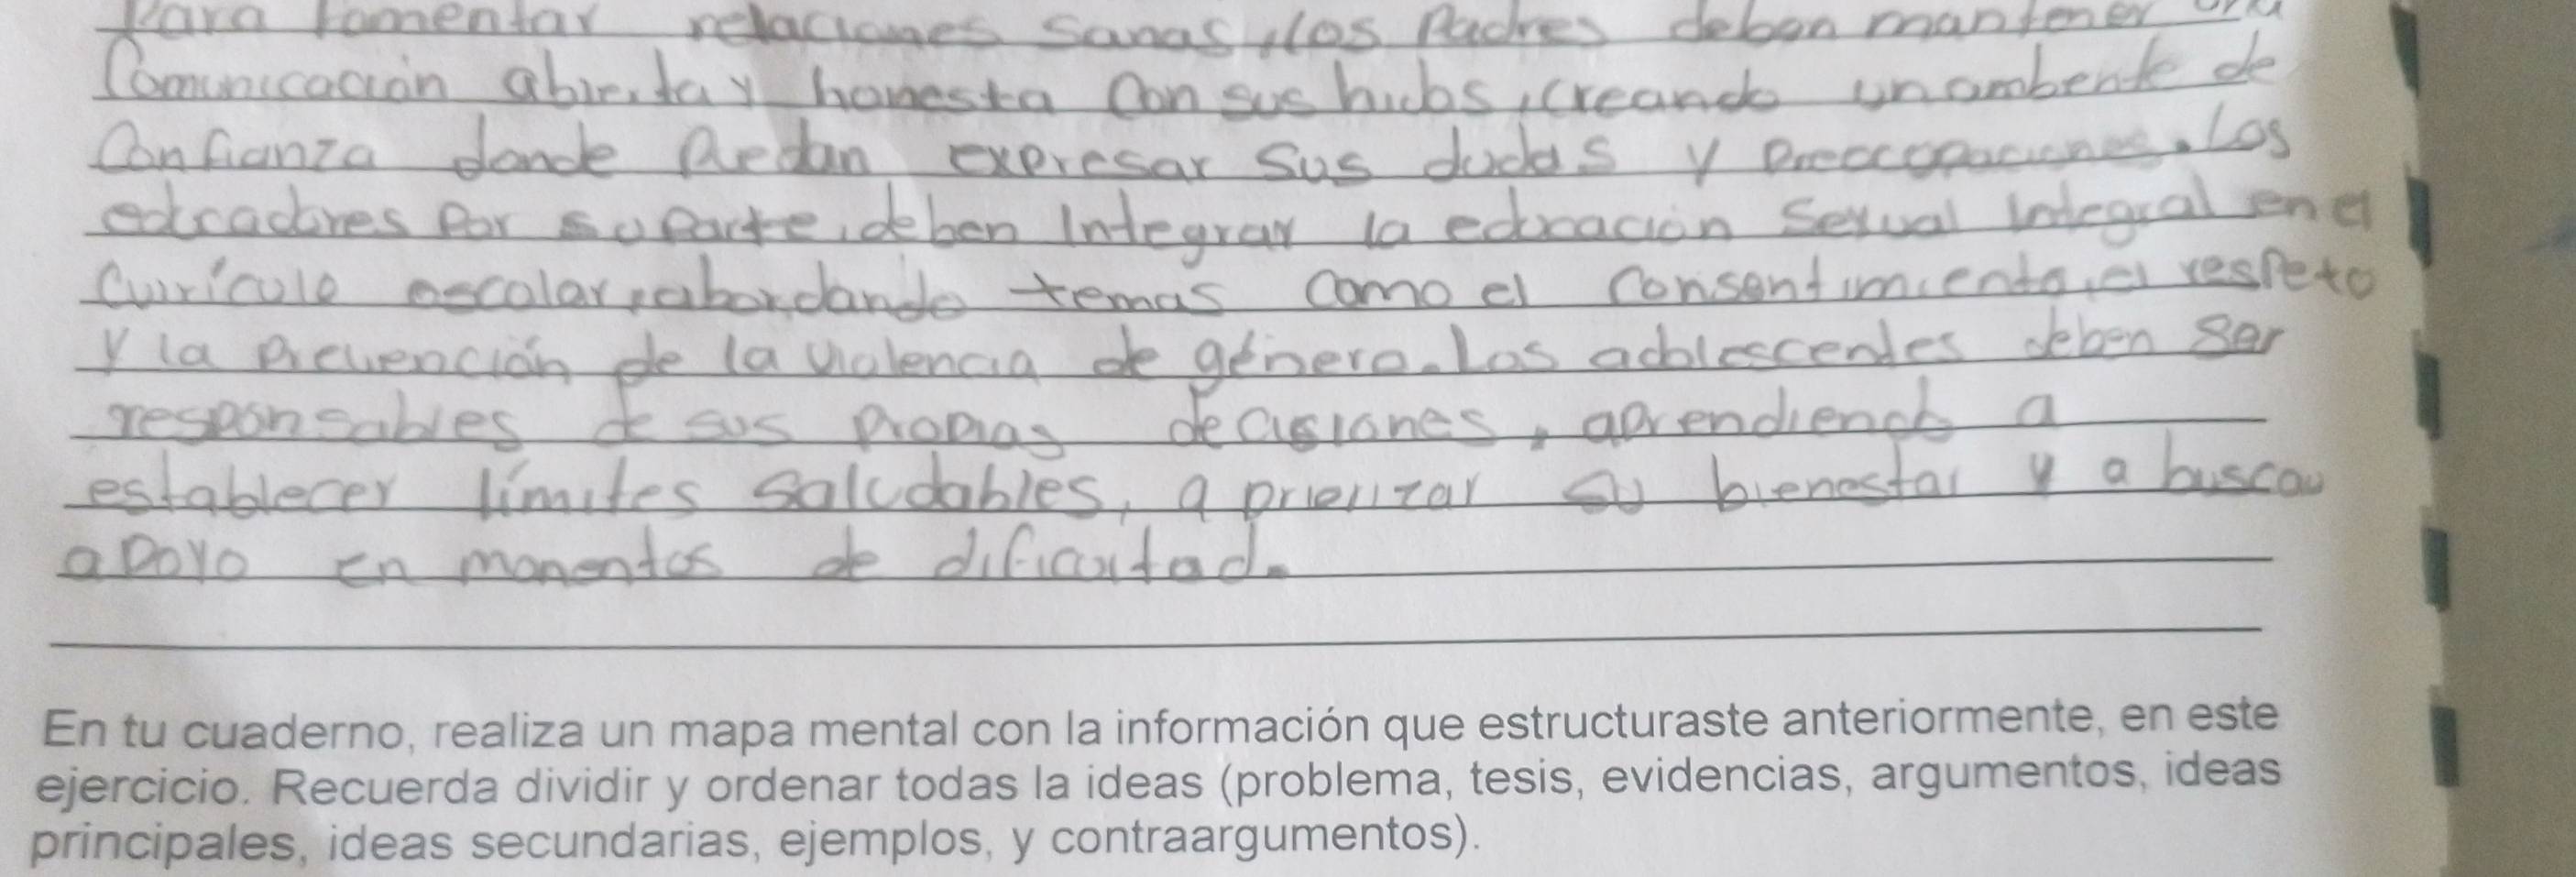 Para fomentar relaciones sanas, los Padres deben mantener una
Comunicación abierta y honesta con sus hijos, creando un ambente de
Confianza donde Puedan expresar sus dudas y preocupaciones. Los
educadores por su parte, deben Integrar la educación Sexual Integral en el
Currículo escolar, abordando temas como el consentimiento, el respeto
y la prevención de la violencia de género. Los adolescentes deben ser
responsables de sus propias decisiones, aprendiendo a
establecer límites saludables, a priorizar su bienestar y a buscar
apoyo en momentos de dificultad.
En tu cuaderno, realiza un mapa mental con la información que estructuraste anteriormente, en este
ejercicio. Recuerda dividir y ordenar todas la ideas (problema, tesis, evidencias, argumentos, ideas
principales, ideas secundarias, ejemplos, y contraargumentos).